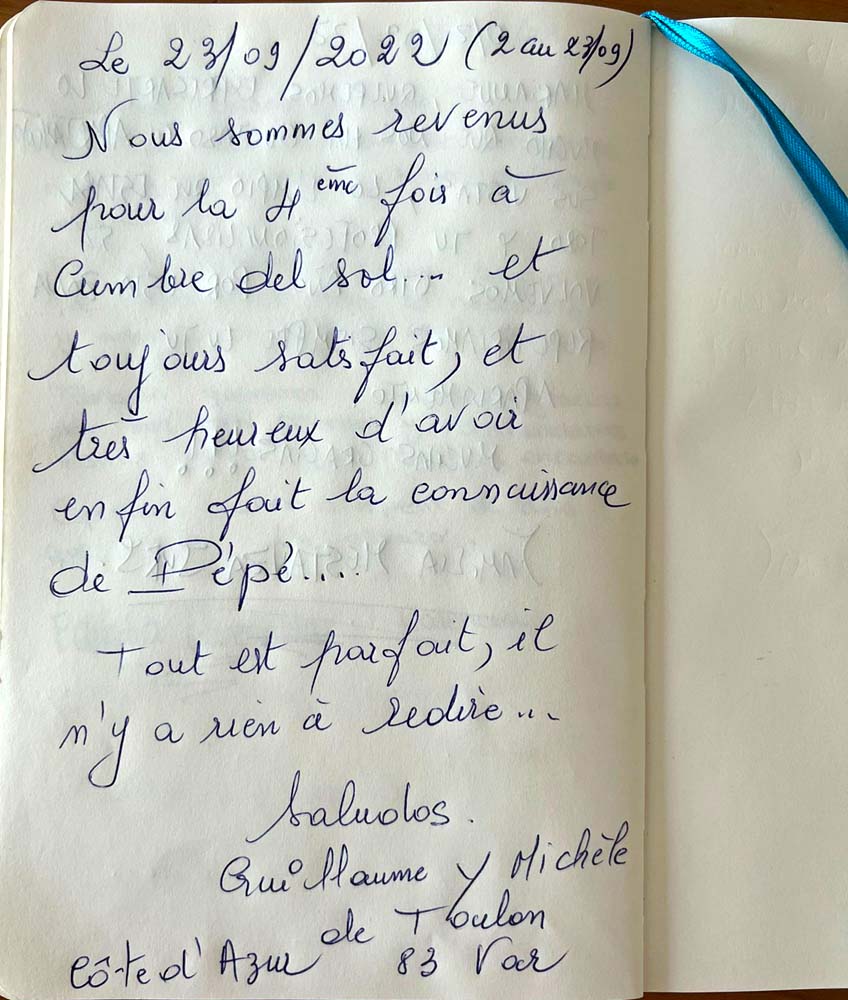 Le 23/09/2022 (2 au 23/09)
Nous sommes revenus
pour la 4ème fois à
Cumbre del sol... et
toujours satisfait, et
très heureux d'avoir
enfin fait la connaissance
de Pépé....
Tout est parfait, il
n'y a rien à redire...
Saludos.
Guillaume y Michèle
de Toulon
Côte d'Azur 83 Var